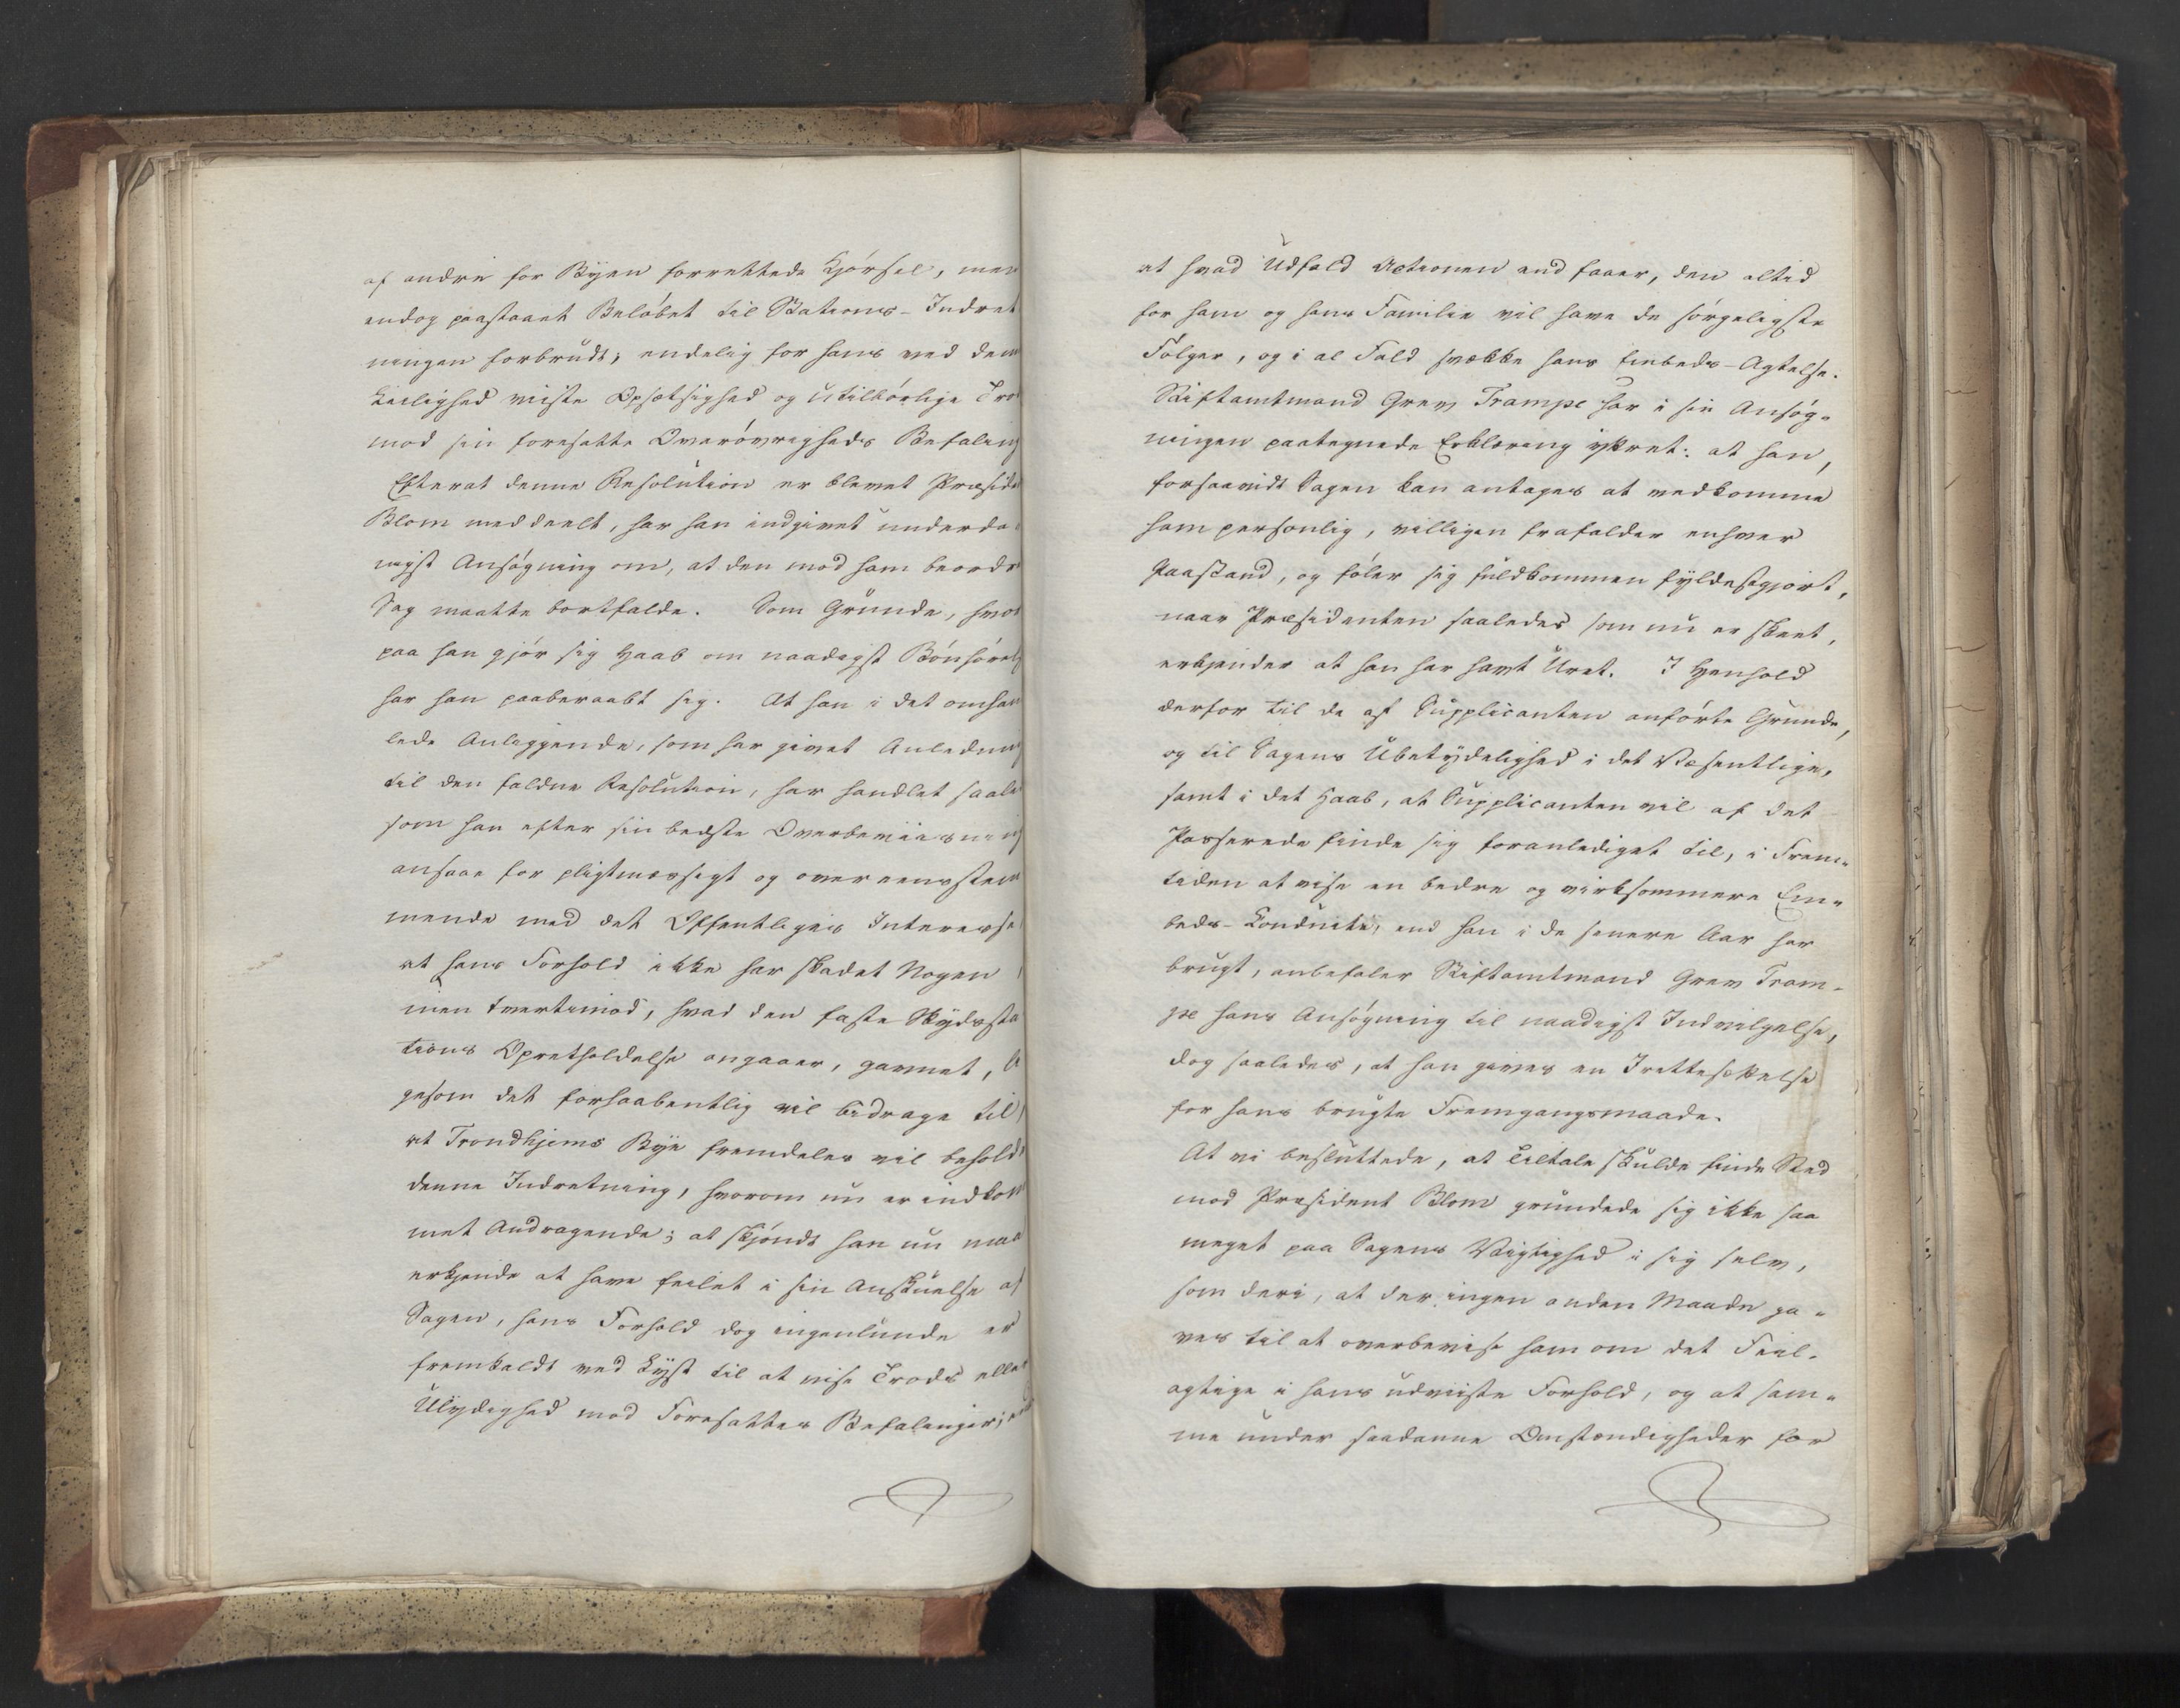 af andre for Byen forrettede Kjørsel, men
endog paastaaet Beløbet til Stations-Indret
ningen forbrudt; endelig for hans ved denne
Leilighed viiste Opsætsighed og utilbørlige Trod
mod sin foresatte Overøvrigheds Befaling
Efterat denne Resolution er blevet Præsident
Blom meddeelt, har han indgivet underda
nigst Ansøgning om, at den mod ham beordr
Sag maatte bortfalde. Som Grunde, hvor
paa han gjør sig Haab om naadigst Bønhørels
har han paaberaabt sig. At han i det omhan
lede Anliggende, som har givet Anledning
til den faldne Resolution, har handlet saale
som han efter sin bedste Overbeviisning
ansaae for pligtmæssigt og overeensstem
mende med det Offentliges Interesse
at hans Forhold ikke har skadet Nogen
men tvertimod, hvad den faste Skydssta
tions Opretholdelse angaaer, gavnet, li
gesom det forhaabentlig vil bidrage til
at Trondhjems Bye fremdeles vil behold
denne Indretning, hvorom nu er indkom
met Andragende; at skjøndt han nu maa
erkjende at have feilet i sin Anskuelse af
Sagen, hans Forhold dog ingenlunde er
fremkaldt ved Lyst til at vise Trods eller
Ulydighed mod Foresattes Befalinger;
at hvad Udfald Actionen end faaer, den altid
for ham og hans Familie vil have de sørgeligste
Følger, og i al Fald svække hans Embeds-Agtelse.
Stiftamtmand Grev Trampe har i sin Ansøg-
ningen paategnede Erklæring yttret: at han,
forsaavidt Sagen kan antages at vedkomme
ham personlig, villigen frafalder enhver
Paastand, og føler sig fuldkommen fyldestgjort,
naar Præsidenten saaledes som nu er skeet,
erkjender at han har havt Uret. I Henhold
derfor til de af Supplicanten anførte Grunde,
og til Sagens Ubetydelighed i det Væsentlige,
samt i det Haab, at Supplicanten vil af det
Passerede finde sig foranlediget til, i Frem-
tiden at vise en bedre og virksommere Em-
beds-Conduite, end han i de senere Aar har
brugt, anbefaler Stiftamtmand Grev Tram-
pe hans Ansøgning til naadigst Indvilgelse,
dog saaledes, at han gives en Irettesættelse
for hans brugte Fremgangsmaade.
At vi besluttede, at Tiltale skulde finde Sted
mod Præsident Blom grundede sig ikke saa
meget paa Sagens Vigtighed i sig selv,
som deri, at der ingen anden Maade ga-
ves til at overbevise ham om det Feil-
agtige i hans udviiste Forhold, og at sam-
me under saadanne Omstændigheder for